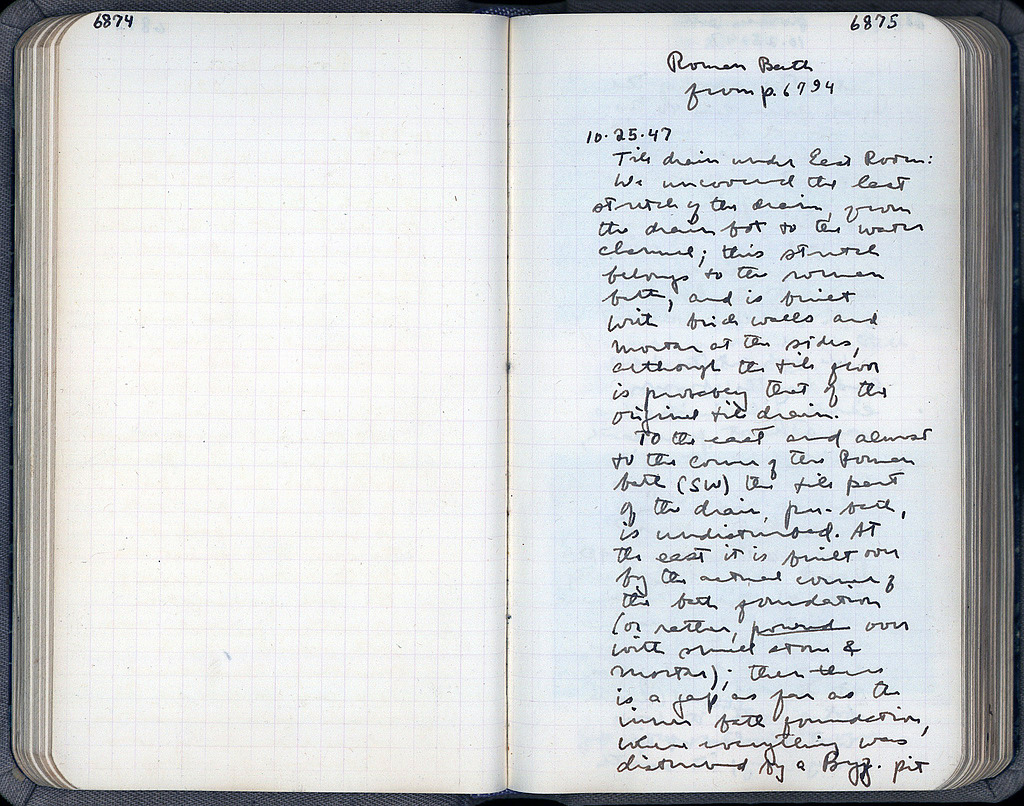 6874
6875
Roman Bath
from p. 6794
10·25·47
Tile drain under East Room:
We uncovered the last
stretch of the drain, from
the drain bot to the water
channel; this stretch
belongs to the roman
bath, and is built
with brick walls and
mortar at the sides,
although the tile floor
is probably that of the
original tile drain.
To the east and almost
to the corner of the Roman
bath (SW) the tile part
of the drain, pre-bath,
is undisturbed. At
the east it is built over
by the actual corner of
the bath foundation
(or rather, poured over
with small stone &
mortar); then there
is a gap as far as the
inner bath foundation,
where everything was
disturbed by a Byz. pit